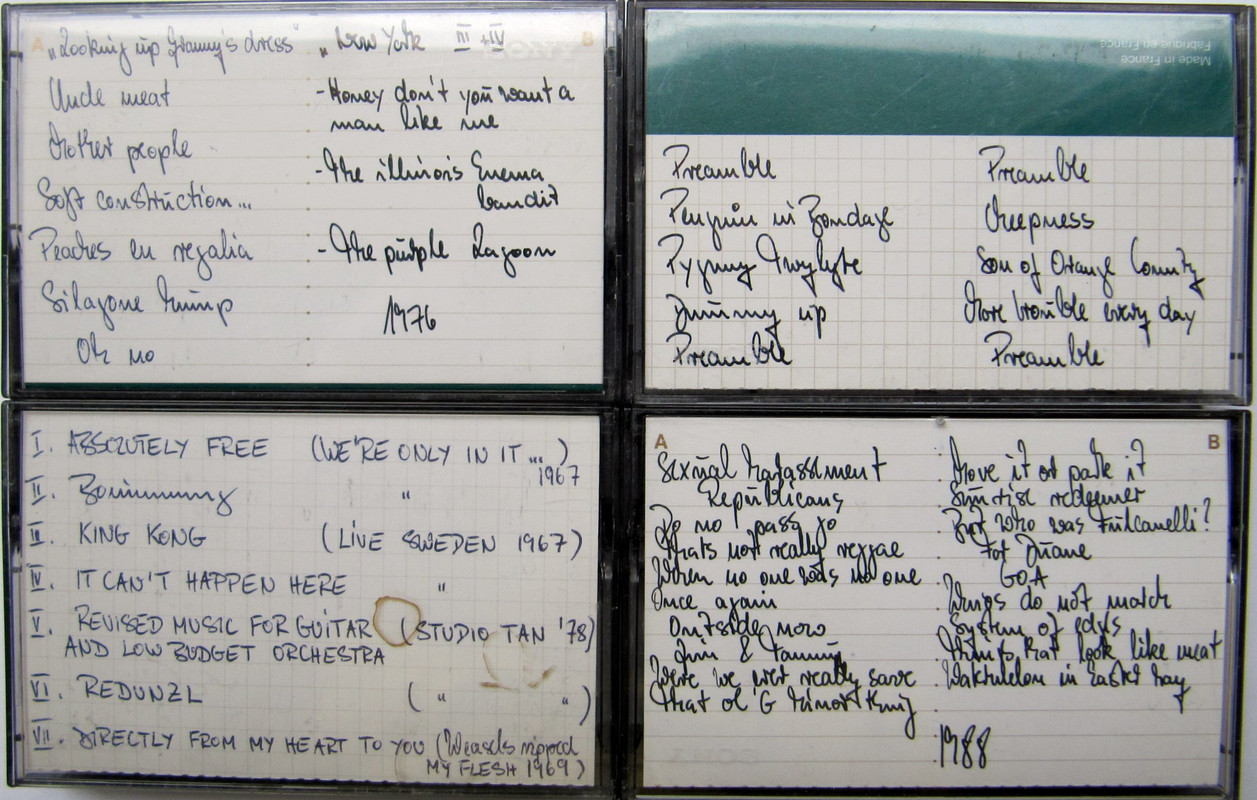 A
B
„Looking up Granny's dress"
Uncle meat
Mother people
Soft construction...
Peaches en regalia
Oh no
„New York III + IV
-Honey don't you want a
man like me
-The illinois Enema
bandit
-The purple Lagoon
1976
Made in France
Fabriqué en France
Preamble
Penguin in Bondage
Pygmy Twylyte
Dummy up
Preamble
Preamble
Cheepness
Son of Orange County
More trouble every day
Preamble
I. ABSOLUTELY FREE (WE'RE ONLY IN IT ... )
1967
II. "
III. KING KONG (LIVE SWEDEN 1967)
IV. IT CAN'T HAPPEN HERE "
V. REVISED MUSIC FOR GUITAR (STUDIO TAN '78)
AND LOW BUDGET ORCHESTRA
VI. REDUNZL ( " " )
VII. DIRECTLY FROM MY HEART TO YOU (Weasels ripped
MY FLESH 1969)
A
Sexual harassment
Republicans
Do no pass go
Thats not really reggae
When no one was no one
Once again
Outside now
Jim & Tammy
Were we ever really save
That ol' G minor thing
B
Move it or park it
Sunrise redeemer
But who was Fulcanelli?
For Duane
GOA
Wings do not match
System of edges
Things that look like meat
Watermelon in Easter hay
1988